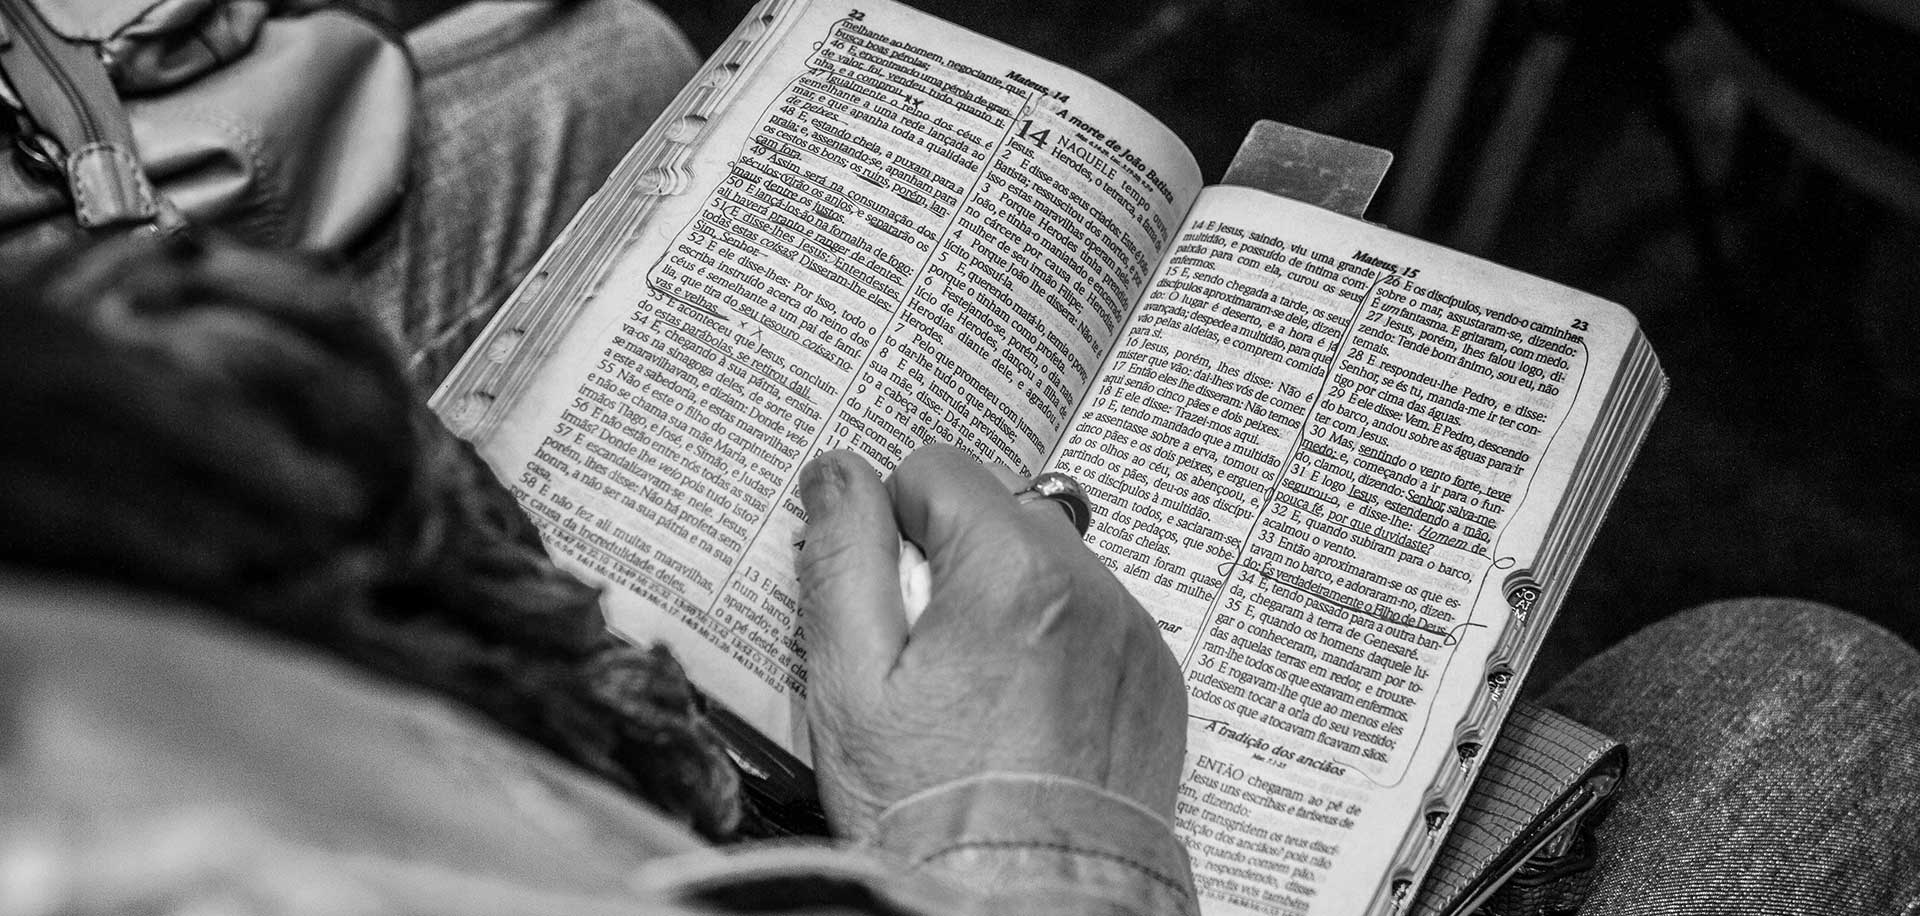 22
Mateus, 14
melhante ao homem, negociante, que
busca boas pérolas;
46 E, encontrando uma pérola de gran-
de valor, foi, vendeu tudo quanto ti-
nha, e a comprou.
47 Igualmente o reino dos céus é
semelhante a uma rede lançada ao
mar, e que apanha toda a qualidade
de peixes.
48 E, estando cheia, a puxam para a
praia; e, assentando-se, apanham para
os cestos os bons; os ruins, porém, lan-
çam fora.
49 Assim será na consumação dos
séculos: virão os anjos, e separarão os
maus dentre os justos.
50 E lançá-los-ão na fornalha de fogo:
ali haverá pranto e ranger de dentes.
51 E disse-lhes Jesus: Entendestes
todas estas coisas? Disseram-lhe eles:
Sim, Senhor.
52 E ele disse-lhes: Por isso, todo o
escriba instruído acerca do reino dos
céus é semelhante a um pai de famí-
lia, que tira do seu tesouro coisas no-
vas e velhas.
53 E aconteceu que Jesus, concluin-
do estas parábolas, se retirou dali.
54 E, chegando à sua pátria, ensina-
va-os na sinagoga deles, de sorte que
se maravilhavam, e diziam: Donde veio
a este a sabedoria, e estas maravilhas?
55 Não é este o filho do carpinteiro?
e não se chama sua mãe Maria, e seus
irmãos Tiago, e José, e Simão, e Judas?
56 E não estão entre nós todas as suas
irmãs? Donde lhe veio pois tudo isto?
57 E escandalizavam-se nele. Jesus,
porém, lhes disse: Não há profeta sem
honra, a não ser na sua pátria e na sua
casa.
58 E não fez ali muitas maravilhas,
por causa da incredulidade deles.
A morte de João Batista
14 NAQUELE tempo ouviu
Herodes, o tetrarca, a fama de
Jesus,
2 E disse aos seus criados: Este é João
Batista; ressuscitou dos mortos, e por
isso estas maravilhas operam nele.
3 Porque Herodes tinha prendido
João, e tinha-o manietado e encerrado
no cárcere, por causa de Herodias,
mulher de seu irmão Filipe;
4 Porque João lhe dissera: Não te é
lícito possuí-la.
5 E, querendo matá-lo, temia o povo;
porque o tinham como profeta.
6 Festejando-se, porém, o dia nata-
lício de Herodes, dançou a filha de
Herodias diante dele, e agradou a
Herodes.
7 Pelo que prometeu com juramen-
to dar-lhe tudo o que pedisse;
8 E ela, instruída previamente por
sua mãe, disse: Dá-me aqui
a cabeça de João Batista
9 E o rei afligiu
do juramento
mesa com ele
10 E mandou
11 E
13 E Jesus,
num barco, p
apartado; e, saben
o a pé desde as cida
23
Mateus, 15
14 E Jesus, saindo, viu uma grande
multidão, e possuído de íntima com-
paixão para com ela, curou os seus
enfermos.
15 E, sendo chegada a tarde, os seus
discípulos aproximaram-se dele, dizen-
do: O lugar é deserto, e a hora é já
avançada; despede a multidão, para que
vão pelas aldeias, e comprem comida
para si.
16 Jesus, porém, lhes disse: Não é
mister que vão: dai-lhes vós de comer.
17 Então eles lhe disseram: Não temos
aqui senão cinco pães e dois peixes.
18 E ele disse: Trazei-mos aqui.
19 E, tendo mandado que a multidão
se assentasse sobre a erva, tomou os
cinco pães e os dois peixes, e erguen-
do os olhos ao céu, os abençoou, e,
partindo os pães, deu-os aos discípu-
los, e os discípulos à multidão.
comeram todos, e saciaram-se;
am dos pedaços, que sobe-
alcofas cheias.
e comeram foram quase
ens, além das mulhe-
mar
26 E os discípulos, vendo-o caminhar
sobre o mar, assustaram-se, dizendo:
É um fantasma. E gritaram, com medo.
27 Jesus, porém, lhes falou logo, di-
zendo: Tende bom ânimo, sou eu, não
temais.
28 E respondeu-lhe Pedro, e disse:
Senhor, se és tu, manda-me ir ter con-
tigo por cima das águas.
29 E ele disse: Vem. E Pedro, descendo
do barco, andou sobre as águas para ir
ter com Jesus.
30 Mas, sentindo o vento forte, teve
medo; e, começando a ir para o fun-
do, clamou, dizendo: Senhor, salva-me.
31 E logo Jesus, estendendo a mão,
segurou-o, e disse-lhe: Homem de
pouca fé, por que duvidaste?
32 E, quando subiram para o barco,
acalmou o vento.
33 Então aproximaram-se os que es-
tavam no barco, e adoraram-no, dizen-
do: És verdadeiramente o Filho de Deus.
34 E, tendo passado para a outra ban-
da, chegaram à terra de Genesaré.
35 E, quando os homens daquele lu-
gar o conheceram, mandaram por to-
das aquelas terras em redor, e trouxe-
ram-lhe todos os que estavam enfermos.
36 E rogavam-lhe que ao menos eles
pudessem tocar a orla do seu vestido;
e todos os que a tocavam ficavam sãos.
A tradição dos anciãos
ENTÃO chegaram ao pé de
Jesus uns escribas e fariseus de
ém, dizendo:
que transgridem os teus discí-
adição dos anciãos? pois não
ãos quando comem pão.
respondendo, disse-